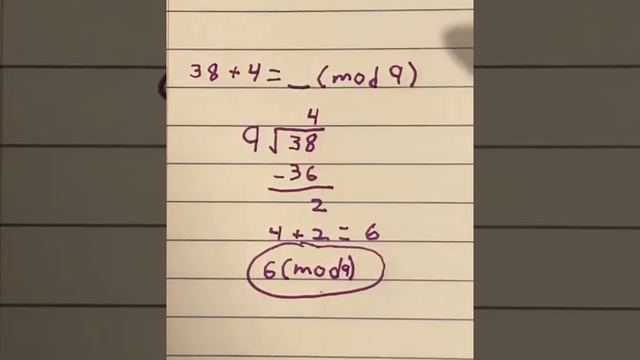 38 + 4 = _ (mod 9)
4
9√38
-36
2
4 + 2 = 6
6 (mod 9)